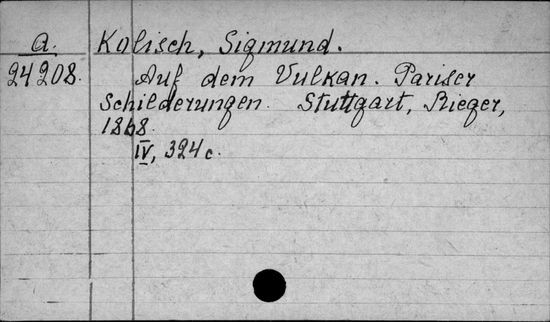 a. Kolisch, Sigmund.
24208. Auf dem Vulkan. Pariser
Schilderungen. Stuttgart, Rieger,
1868.
IV, 324 c.